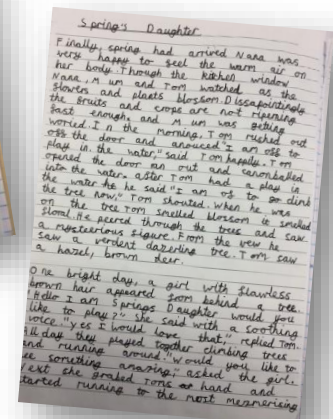 Spring's Daughter
Finally, spring had arrived Nana was
very happy to feel the warm air on
her body. Through the kitchen window
Nana, Mum and Tom watched as the
flowers and plants blossom. Dissapointingly
the fruits and crops are not ripening
fast enough, and Mum was getting
woried. In the morning, Tom rushed out
off the door and anouced "I am off to
play in the water," said Tom happily. Tom
opened the door ran out and canonballed
into the water. after Tom had a play in
the water he he said "I am of to climb
the tree now," Tom shouted. When he was
on the tree Tom smelled blossom it smelled
floral. He peered through the trees and saw
a mysteerious figure. From the vew he
saw a verdent dazerling tree. Tom saw
a hazel, brown deer.
One bright day, a girl with flawless
brown hair appeared from behind a tree.
"Hello I am Springs Daughter would you
like to play?" She said with a soothing
voice. "yes I would love that," replied Tom.
All day they played together climbing trees
and running around. "Would you like to
see sorething amazing," asked the girl.
Next she grabed Toms hand and
started running to the most mezmerising